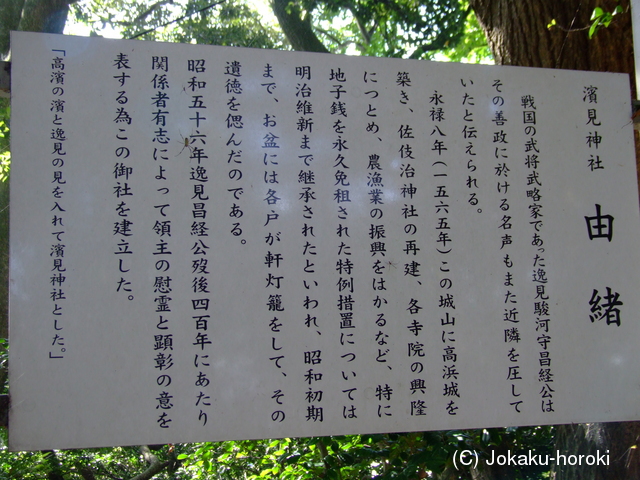 濱見神社 由緒
戦国の武将武略家であった逸見駿河守昌経公は
その善政に於ける名声もまた近隣を圧して
いたと伝えられる。
永禄八年(一五六五年)この城山に高浜城を
築き、佐伎治神社の再建、各寺院の興隆
につとめ、農漁業の振興をはかるなど、特に
地子銭を永久免租された特例措置については
明治維新まで継承されたといわれ、昭和初期
まで、お盆には各戸が軒灯籠をして、その
遺徳を偲んだのである。
昭和五十六年逸見昌経公歿後四百年にあたり
関係者有志によって領主の慰霊と顕彰の意を
表する為この御社を建立した。
「高濱の濱と逸見の見を入れて濱見神社とした。」
(C) Jokaku-horoki